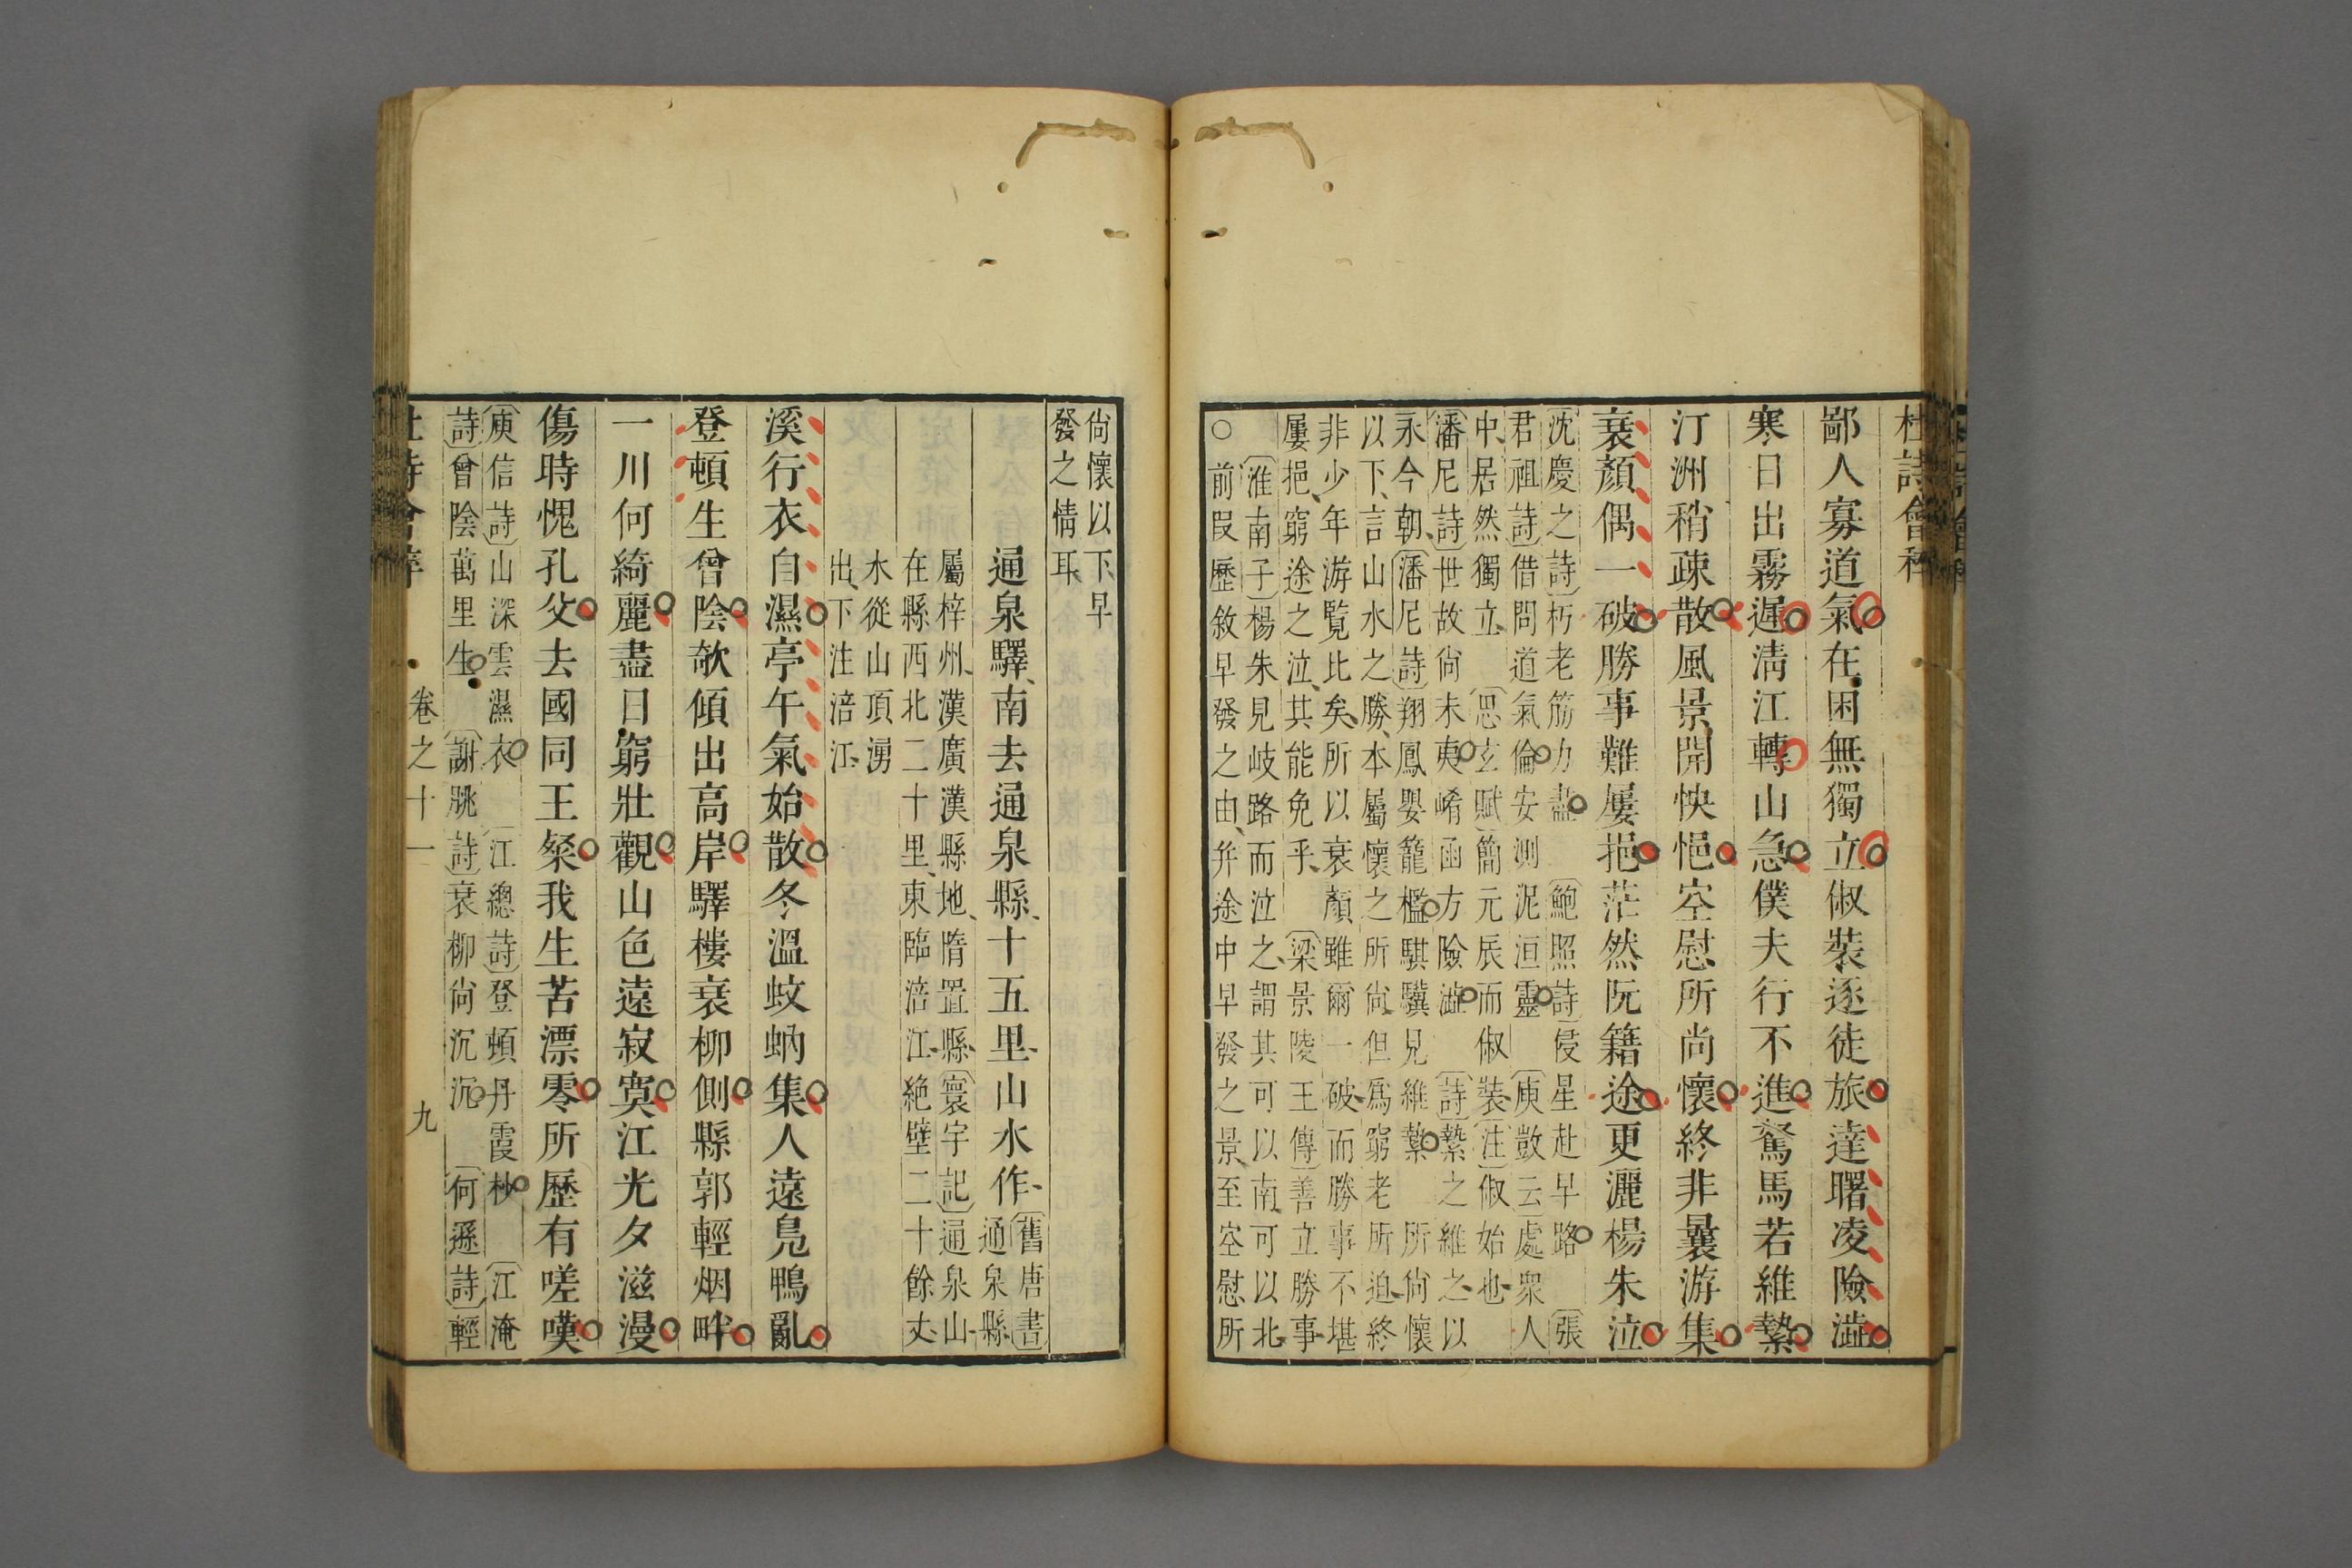 杜詩會稡
鄙人寡道氣在困無獨立俶裝逐徒旅達曙凌險澁
寒日出霧遲淸江轉山急僕夫行不進駑馬若維縶
汀洲稍疎散風景開怏悒空慰所尚懷終非曩游集
衰顏偶一破勝事難屢挹茫然阮籍途更灑楊朱泣
沈慶之詩朽老筋力盡 鮑照詩侵星赴早路 張
君祖詩借問道氣倫安測泥洹靈 庾敳云處衆人
中居然獨立 思玄賦簡元辰而俶裝注俶始也
潘尼詩世故尚未夷崤函方險澁 詩縶之維之以
永今朝潘尼詩翔鳳嬰籠檻騏驥見維縶 所尚懷
以下言山水之勝本屬懷之所尚但爲窮老所迫終
非少年游覽比矣所以衰顏雖爾一破而勝事不堪
屢挹窮途之泣其能免乎 梁景陵王傳善立勝事
淮南子楊朱見岐路而泣之謂其可以南可以北
○前段歷敘早發之由幷途中早發之景至空慰所
尚懷以下早
發之情耳
通泉驛南去通泉縣十五里山水作 舊唐書
通泉縣
屬梓州漢廣漢縣地隋置縣寰宇記通泉山
在縣西北二十里東臨涪江絶壁二十餘丈
水從山頂湧
出下注涪江
溪行衣自濕亭午氣始散冬溫蚊蚋集人遠鳧鴨亂
登頓生曾陰欹傾出高岸驛樓衰柳側縣郭輕烟畔
一川何綺麗盡日窮壯觀山色遠寂寞江光夕滋漫
傷時愧孔父去國同王粲我生苦漂零所歷有嗟嘆
庾信詩山深雲濕衣 江總詩登頓丹霞杪 江淹
詩曾陰萬里生 謝朓詩衰柳尚沉沉 何遜詩輕
杜詩會稡 卷之十一 九